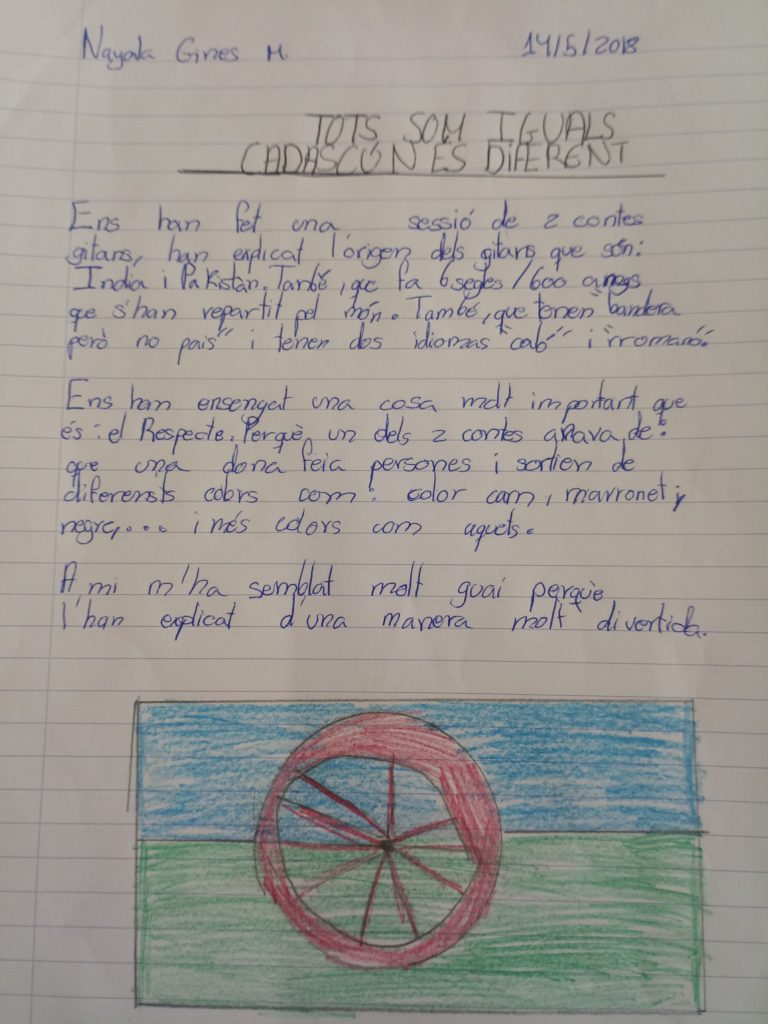 Nayala Gines M.
14/5/2018
TOTS SOM IGUALS
CADASCÚN ÉS DIFERENT
Ens han fet una sessió de 2 contes
gitans, han explicat l'órigen dels gitans que són:
India i Pakistan. També, que fa 6 segles/600 anys
que s'han repartit pel món. També, que tenen "bandera
però no país" i tenen dos idiomas "caló" i "rromanó".
Ens han ensenyat una cosa molt important que
és: el Respecte. Perquè, un dels 2 contes anava de:
que una dona feia persones i sortien de
diferensts colors com: color carn, marronet,
negre,... i més colors com aquets.
A mi m'ha semblat molt guai perquè
l'han explicat d'una manera molt divertida.